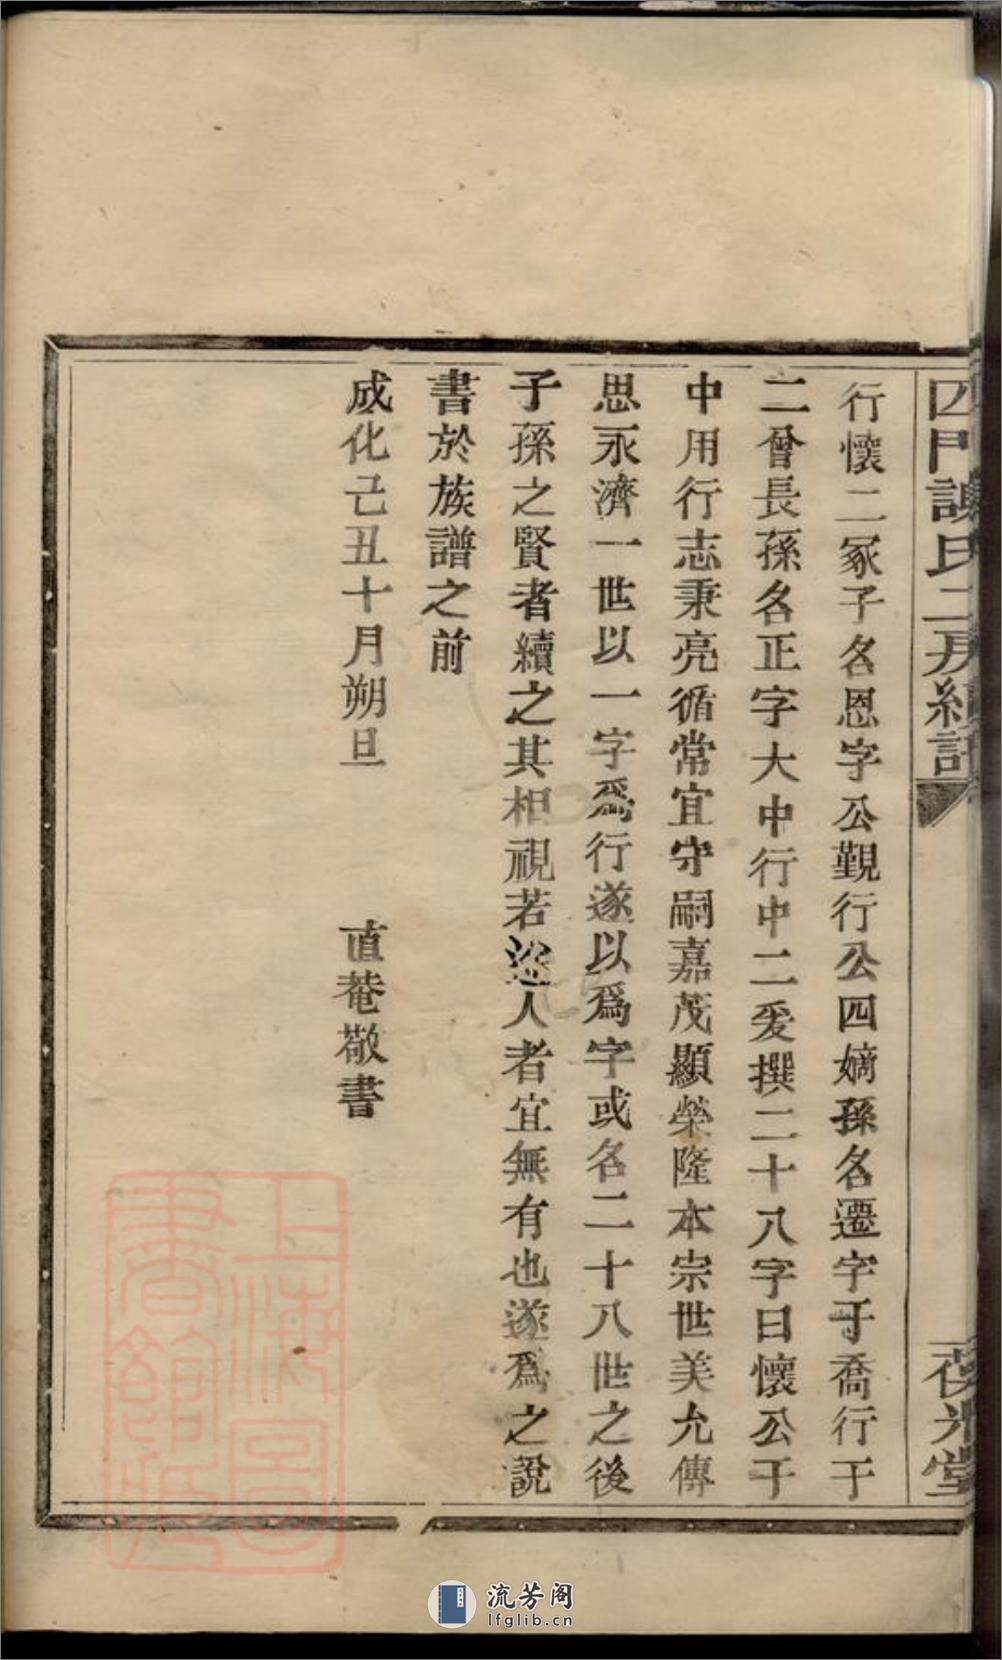 四門謝氏二房續譜
葆光堂
行懷二冢子名恩字公覲行公四嫡孫名遷字于喬行于
二曾長孫名正字大中行中二爰撰二十八字曰懷公于
中用行志秉亮循常宜守嗣嘉茂顯榮隆本宗世美允傳
思永濟一世以一字爲行遂以爲字或名二十八世之後
子孫之賢者續之其相視若塗人者宜無有也遂爲之說
書於族譜之前
成化己丑十月朔旦 直菴敬書
上海圖
書館藏
流芳阁
lfglib.cn